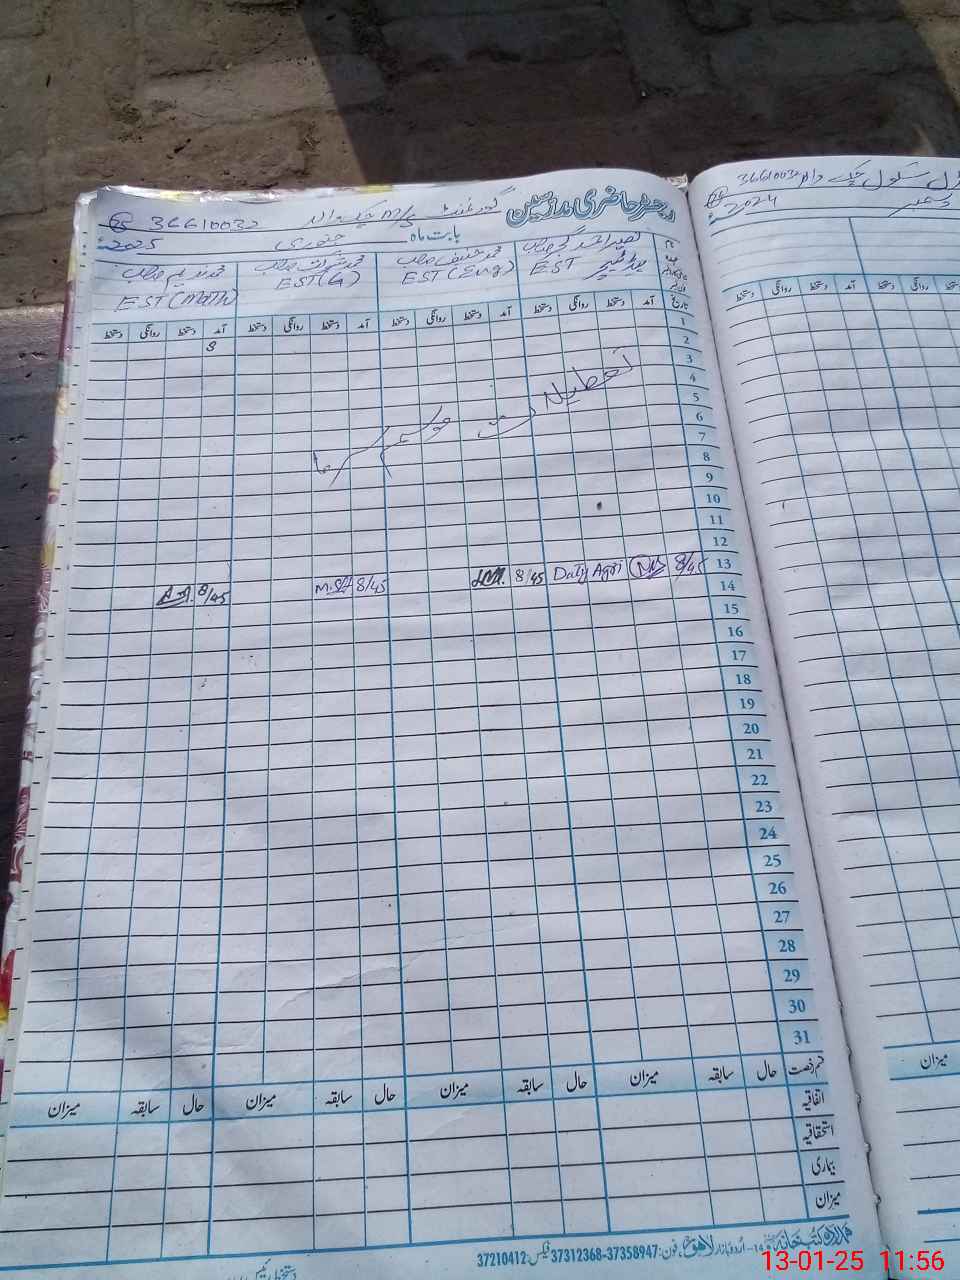 رجسٹر حاضری مدرسین گورنمنٹ M/S چک والہ 36610032
بابت ماہ جنوری 2025ء
نصیر احمد EST
محمد حنیف صاحب EST (Eng)
صاحب EST (G)
محمد ندیم صاحب EST (Math)
تاریخ آمد دستخط روانگی دستخط آمد دستخط روانگی دستخط آمد دستخط روانگی دستخط آمد دستخط روانگی دستخط
1
2
3
4
5
6
7
8
9
10
11
12
13
14
15
16
17
18
19
20
21
22
23
24
25
26
27
28
29
30
31
8
تعطیلات موسم سرما
8/45 Duty Agri
8/45
8/45 M.Sh
8/45
قسم رخصت حال سابقہ میزان حال سابقہ میزان حال سابقہ میزان حال سابقہ میزان
اتفاقیہ
استحقاقیہ
بیماری
میزان
اردو بازار لاہور، فون: 37358947-37312368 فیکس: 37210412
36610032
دسمبر 2024
دستخط روانگی دستخط آمد دستخط روانگی
میزان
13-01-25 11:56